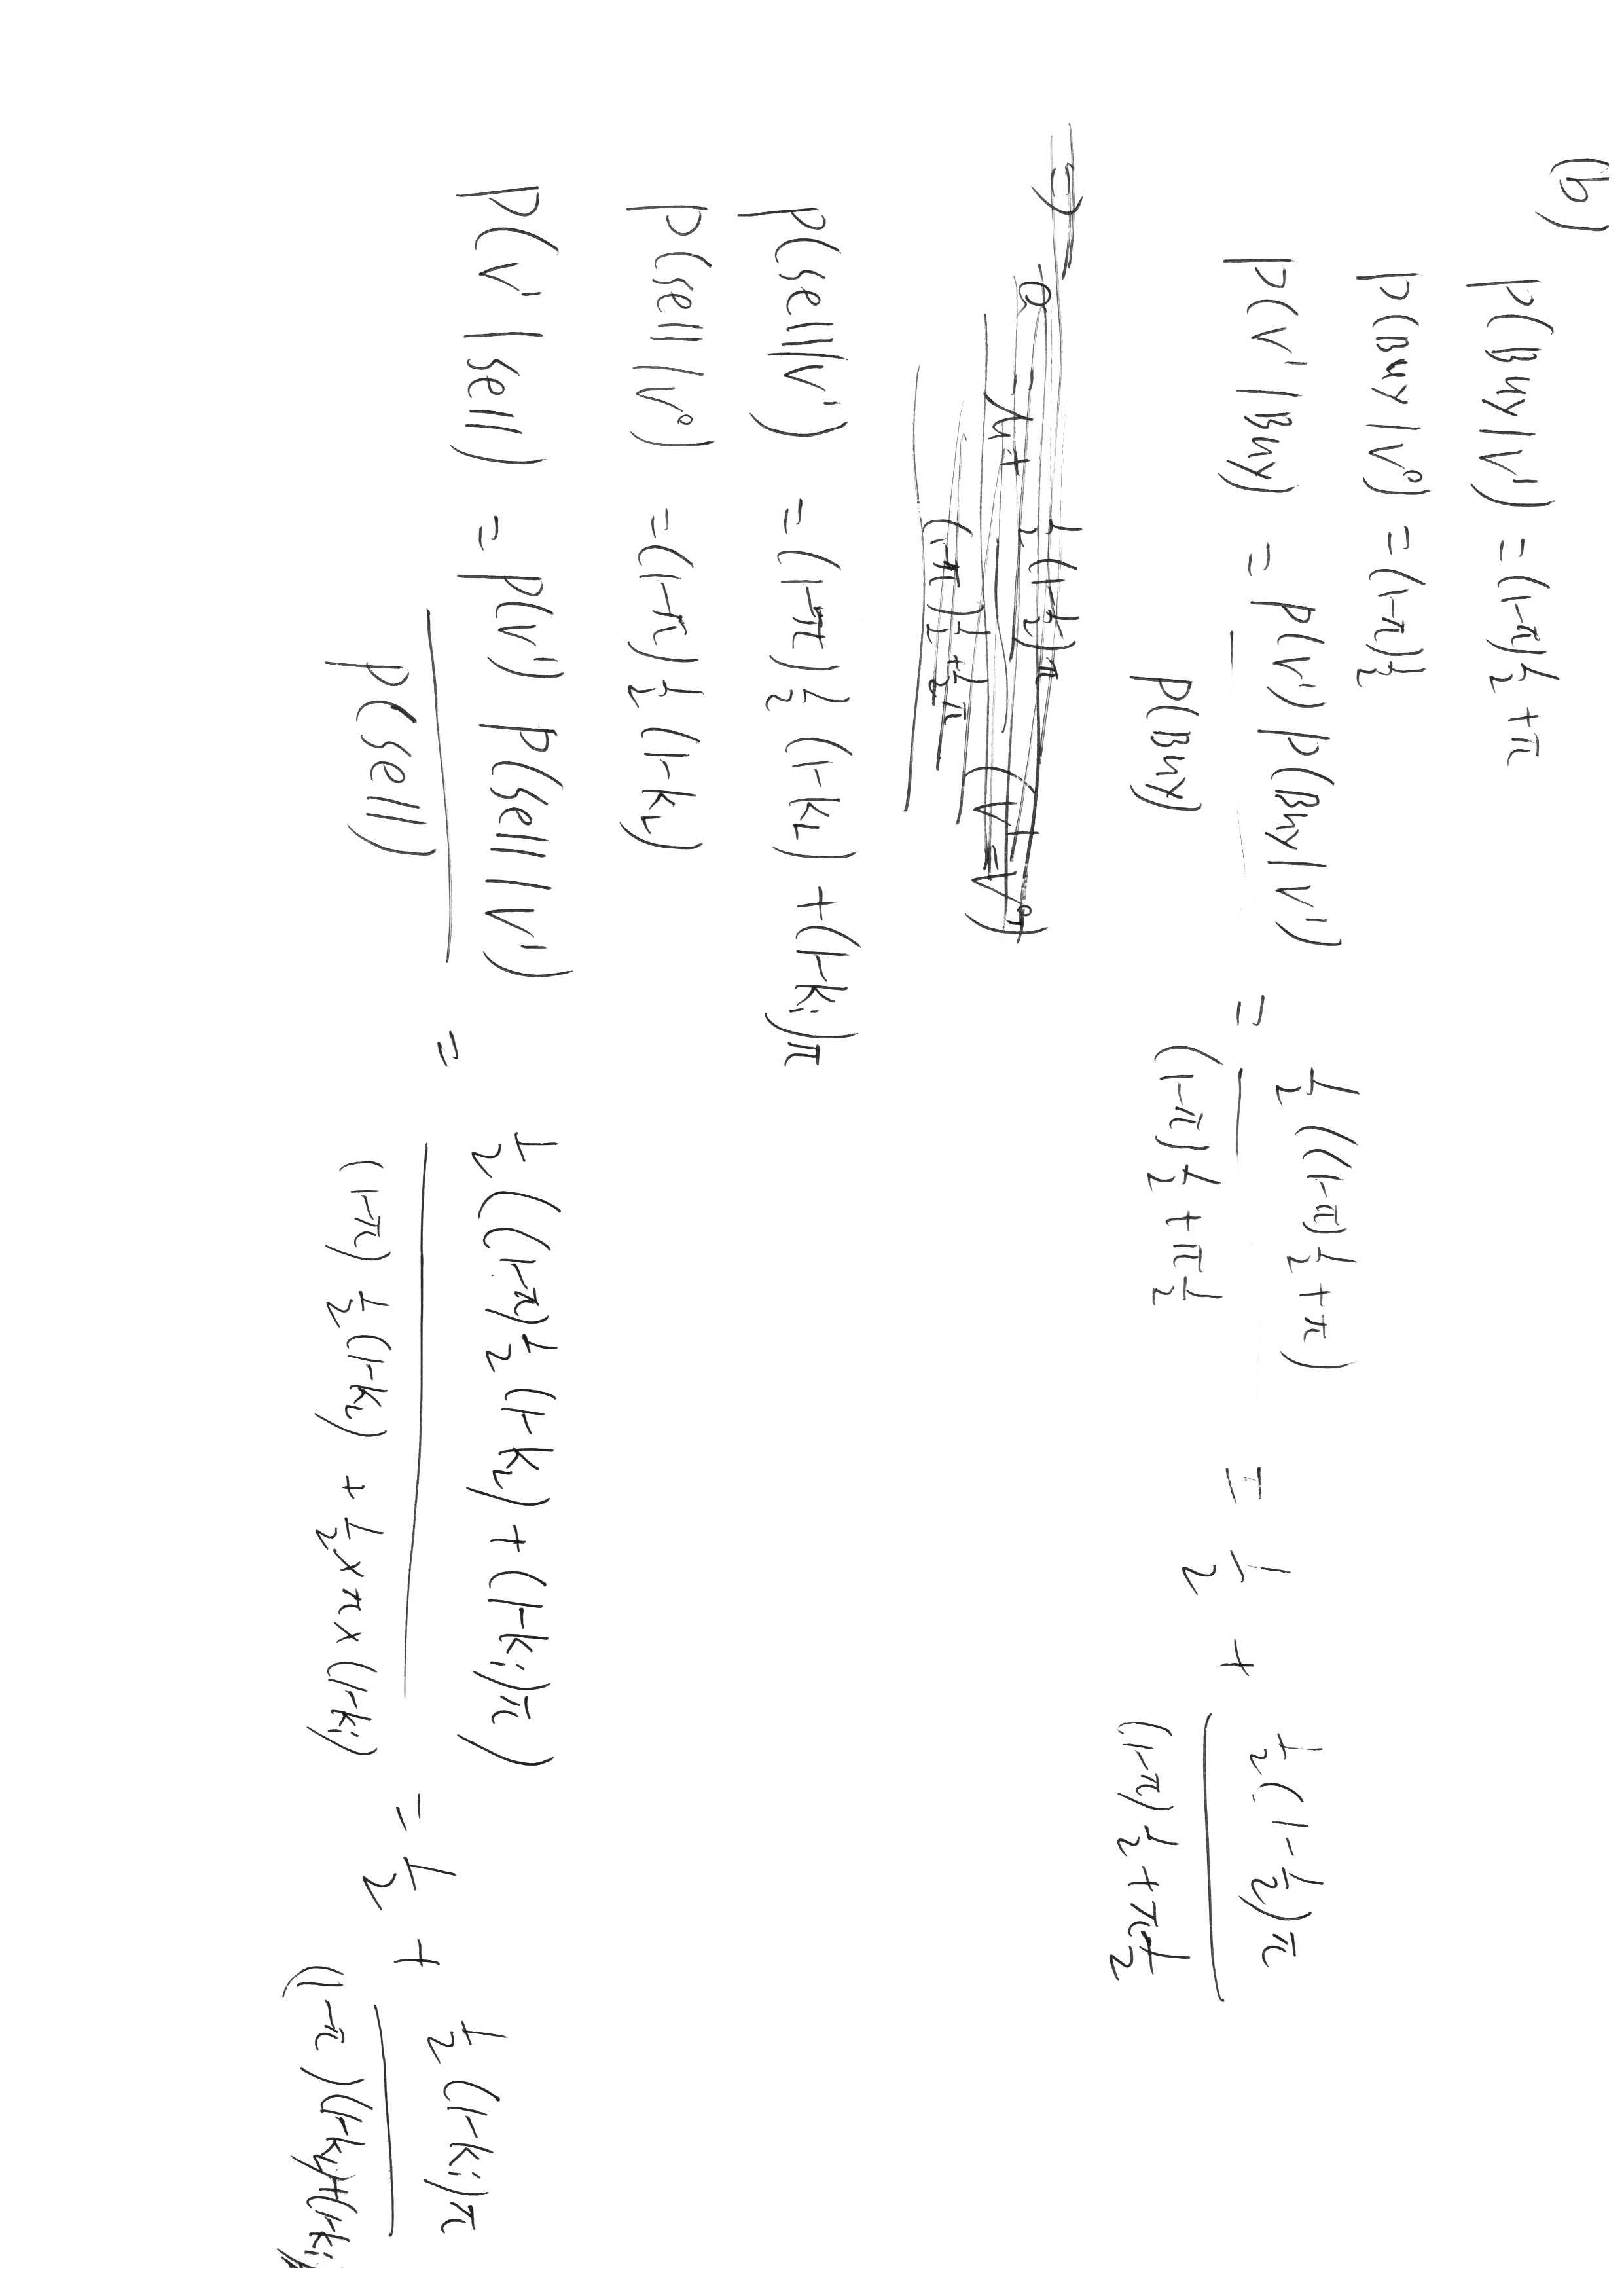 (b)
P(Buy|V¹) = (1-π)½ + π
P(Buy|V⁰) = (1-π)½
P(V¹|Buy) = P(V¹) P(Buy|V¹) / P(Buy) = ½((1-π)½ + π) / ((1-π)½ + π½) = ½ + ½(1-½)π / ((1-π)½ + π½)
⇒ a = μ + ½(1-½)π / ((1-π)½ + ½π) (V¹ - V⁰)
P(sell|V¹) = (1-π)½(1-k_L) + (1-k_i)π
P(sell|V⁰) = (1-π)½(1-k_L)
P(V¹|sell) = P(V¹) P(sell|V¹) / P(sell) = ½((1-π)½(1-k_L) + (1-k_i)π) / ((1-π)½(1-k_L) + ½×π×(1-k_i)) = ½ + ½(1-k_i)π / ((1-π)(1-k_L)+(1-k_i)